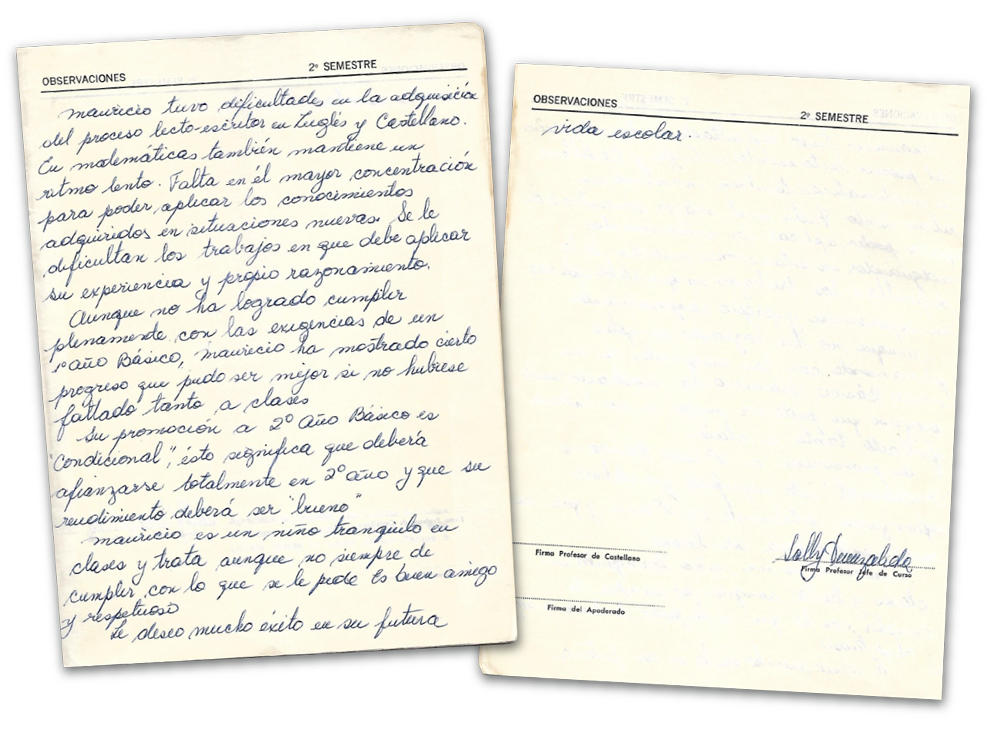 OBSERVACIONES 2º SEMESTRE
mauricio tuvo dificultades en la adquisición
del proceso lecto-escritor en Inglés y Castellano.
En matemáticas también mantiene un
ritmo lento. Falta en él mayor concentración
para poder aplicar los conocimientos
adquiridos en situaciones nuevas. Se le
dificultan los trabajos en que debe aplicar
su experiencia y propio razonamiento.
Aunque no ha logrado cumplir
plenamente con las exigencias de un
1º año Básico, mauricio ha mostrado cierto
progreso que pudo ser mejor si no hubiese
faltado tanto a clases
Su promoción a 2º Año Básico es
"Condicional", ésto significa que deberá
afianzarse totalmente en 2º año y que su
rendimiento deberá ser "bueno"
mauricio es un niño tranquilo en
clases y trata aunque no siempre de
cumplir con lo que se le pide Es buen amigo
y respetuoso
Le deseo mucho éxito en su futura
OBSERVACIONES 2º SEMESTRE
vida escolar.
Firma Profesor de Castellano
Sally
Firma Profesor Jefe de Curso
Firma del Apoderado